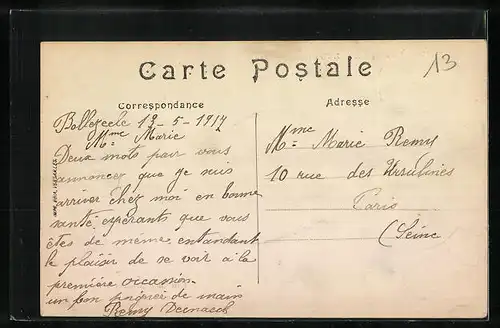 13
Carte Postale
Correspondance
Adresse
Bollezeele 13-5-1917
Mme Marie
Deux mots pair vous
annoncer que je suis
arriver chez moi en bonne
santé espérant que vous
êtes de même entandant
le plaisir de se voir a la
première occasion.
un bon poigner de main
Remy
Mme Marie Remy
10 rue des Ursulines
Paris
(Seine